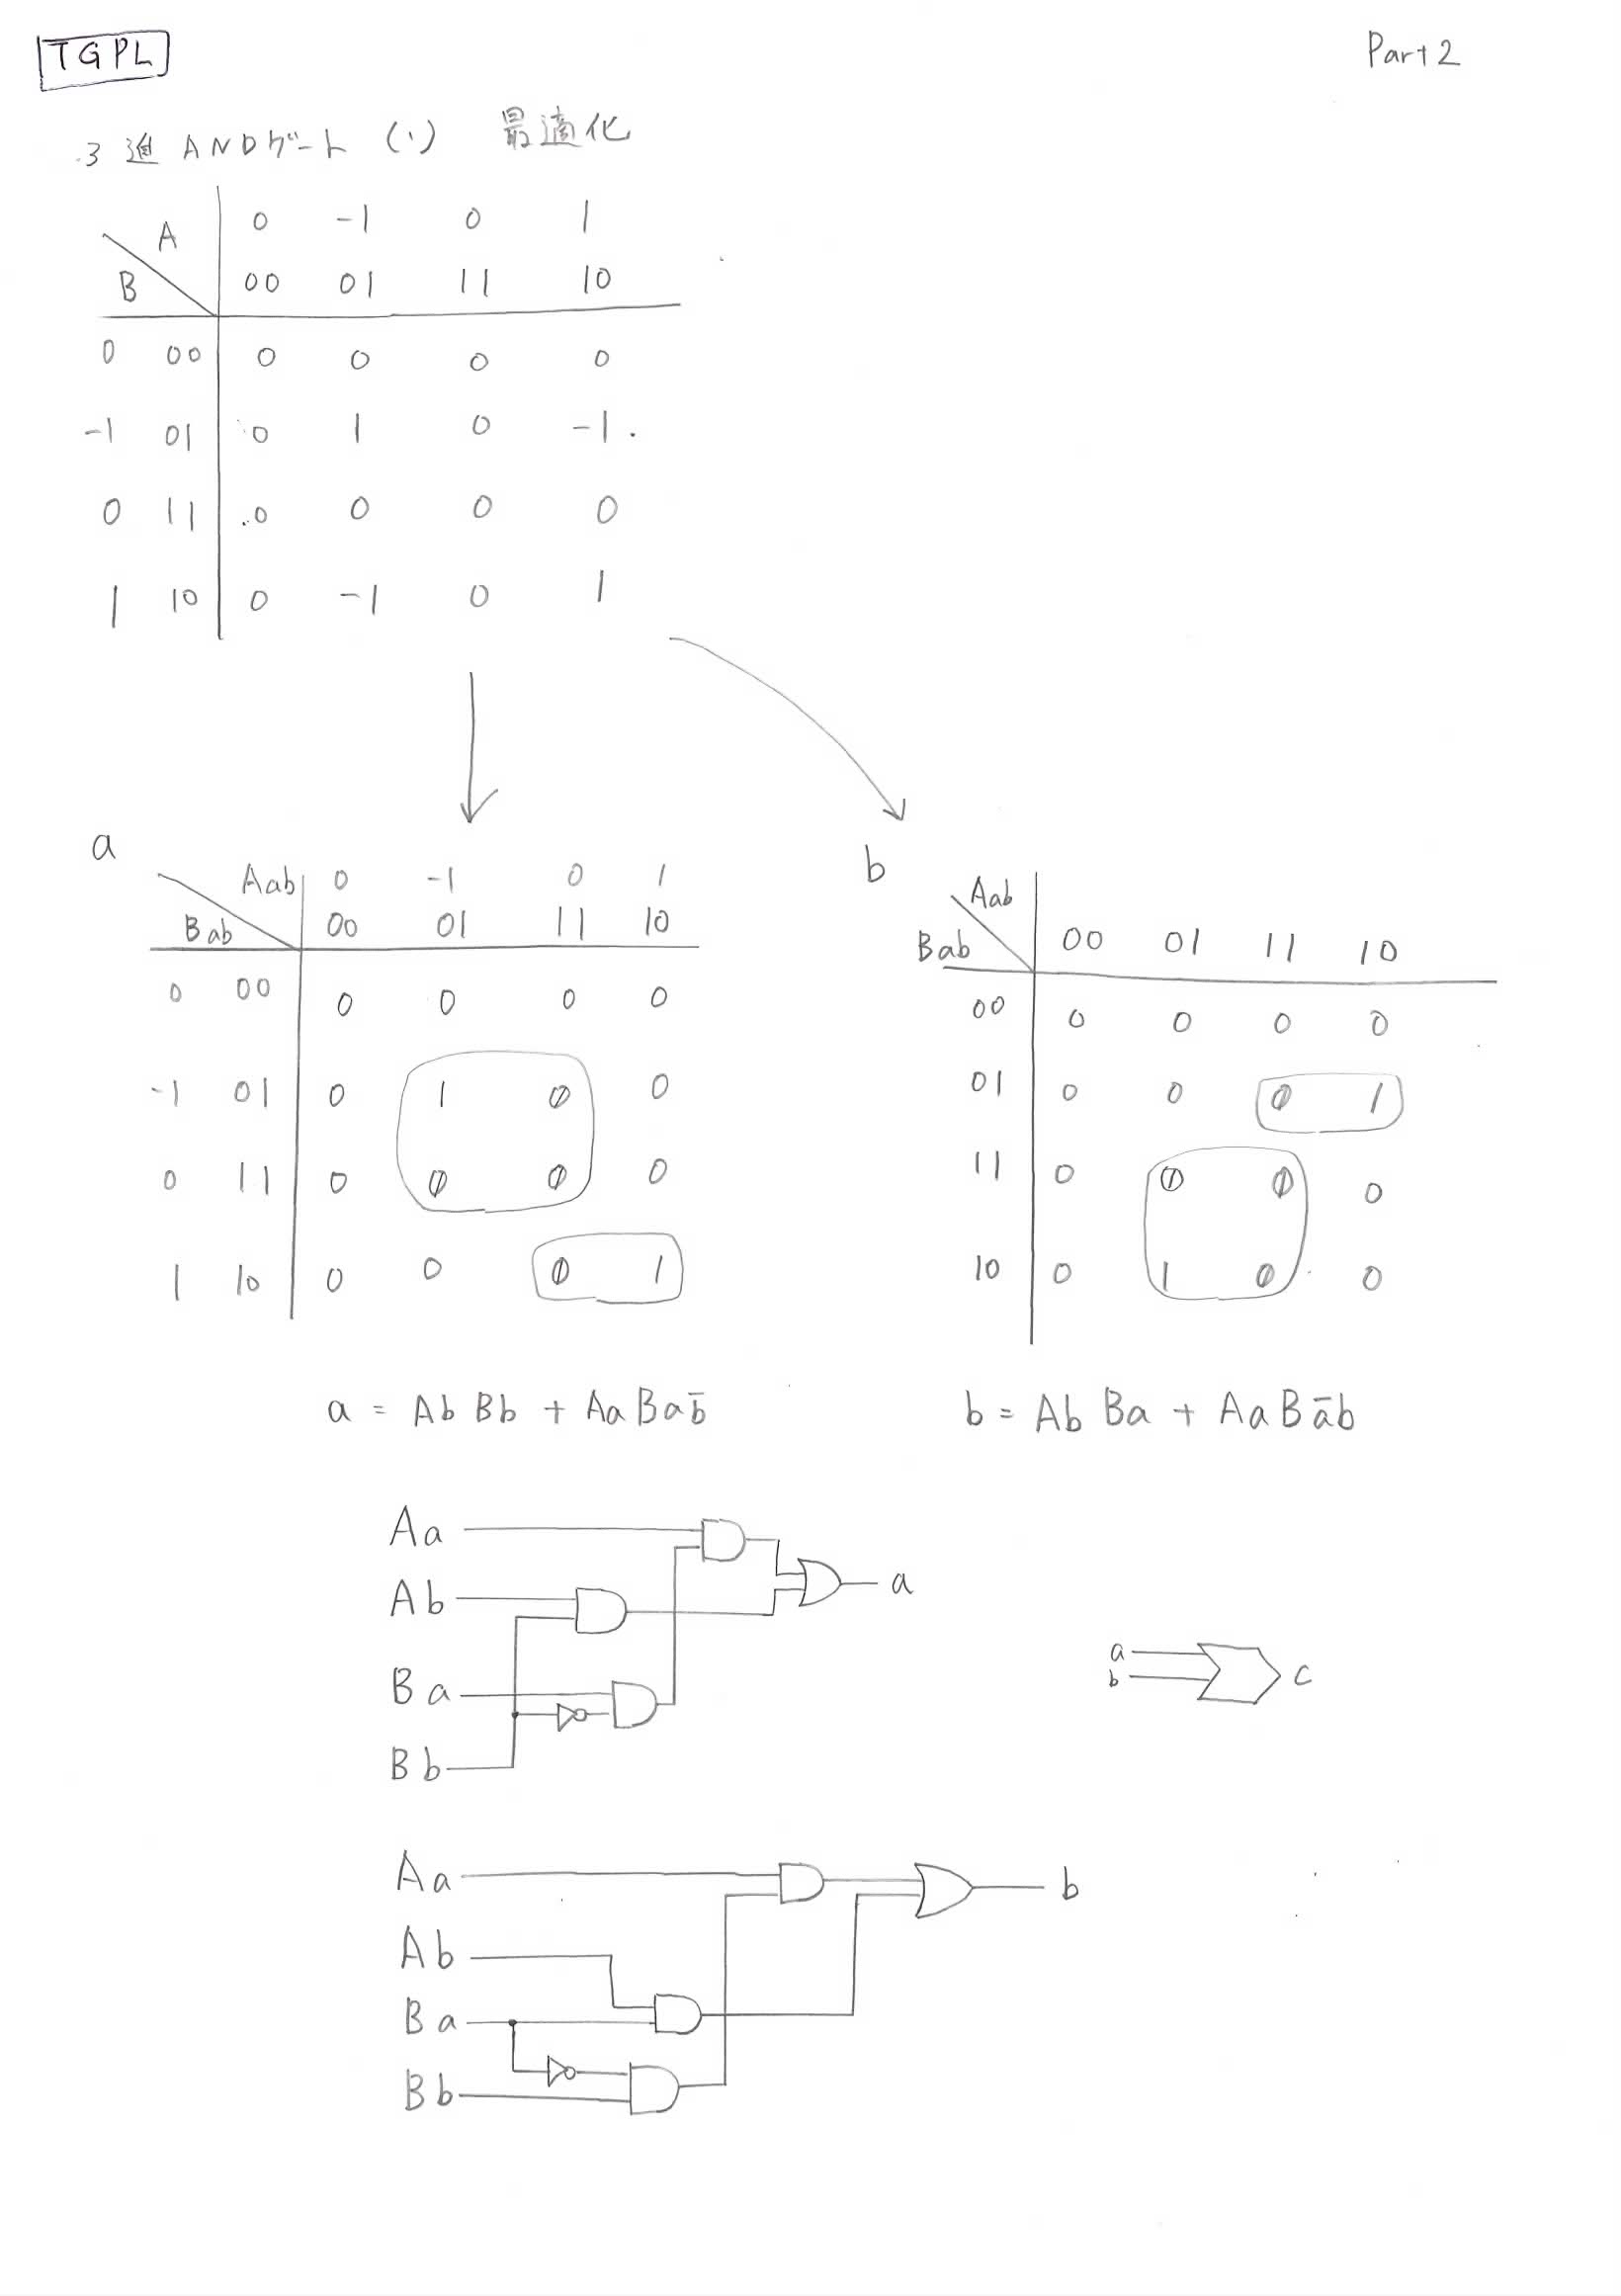 TGPL
Part 2
3進 ANDゲート (・) 最適化
A 0 -1 0 1
B 00 01 11 10
0 00 0 0 0 0
-1 01 0 1 0 -1
0 11 0 0 0 0
1 10 0 -1 0 1
a
Aab 0 -1 0 1
Bab 00 01 11 10
0 00 0 0 0 0
-1 01 0 1 0 0
0 11 0 0 0 0
1 10 0 0 0 1
b
Aab
Bab 00 01 11 10
00 0 0 0 0
01 0 0 0 1
11 0 0 0 0
10 0 1 0 0
a = Ab Bb + Aa Ba b̄
b = Ab Ba + Aa B ā b
Aa
Ab
Ba
Bb
a
a
b
c
Aa
Ab
Ba
Bb
b